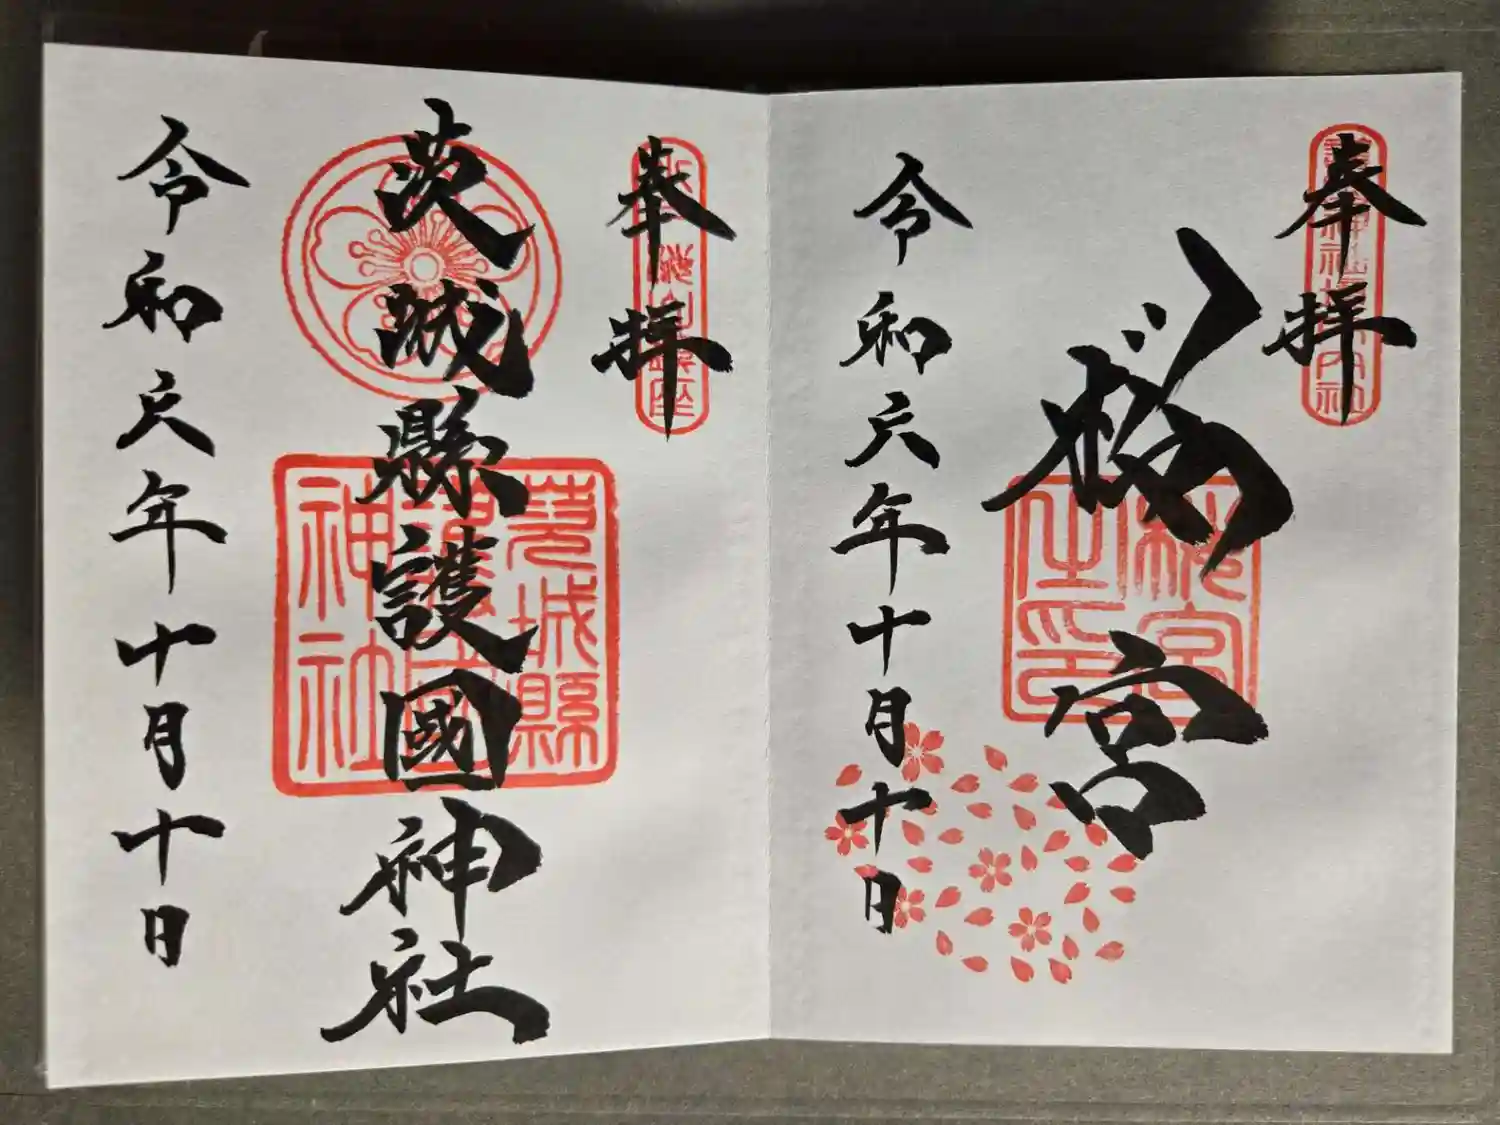 奉拝
桜宮
令和六年十月十日
桜宮
之印
奉拝
茨城縣護國神社
令和六年十月十日
茨城縣
護國
神社